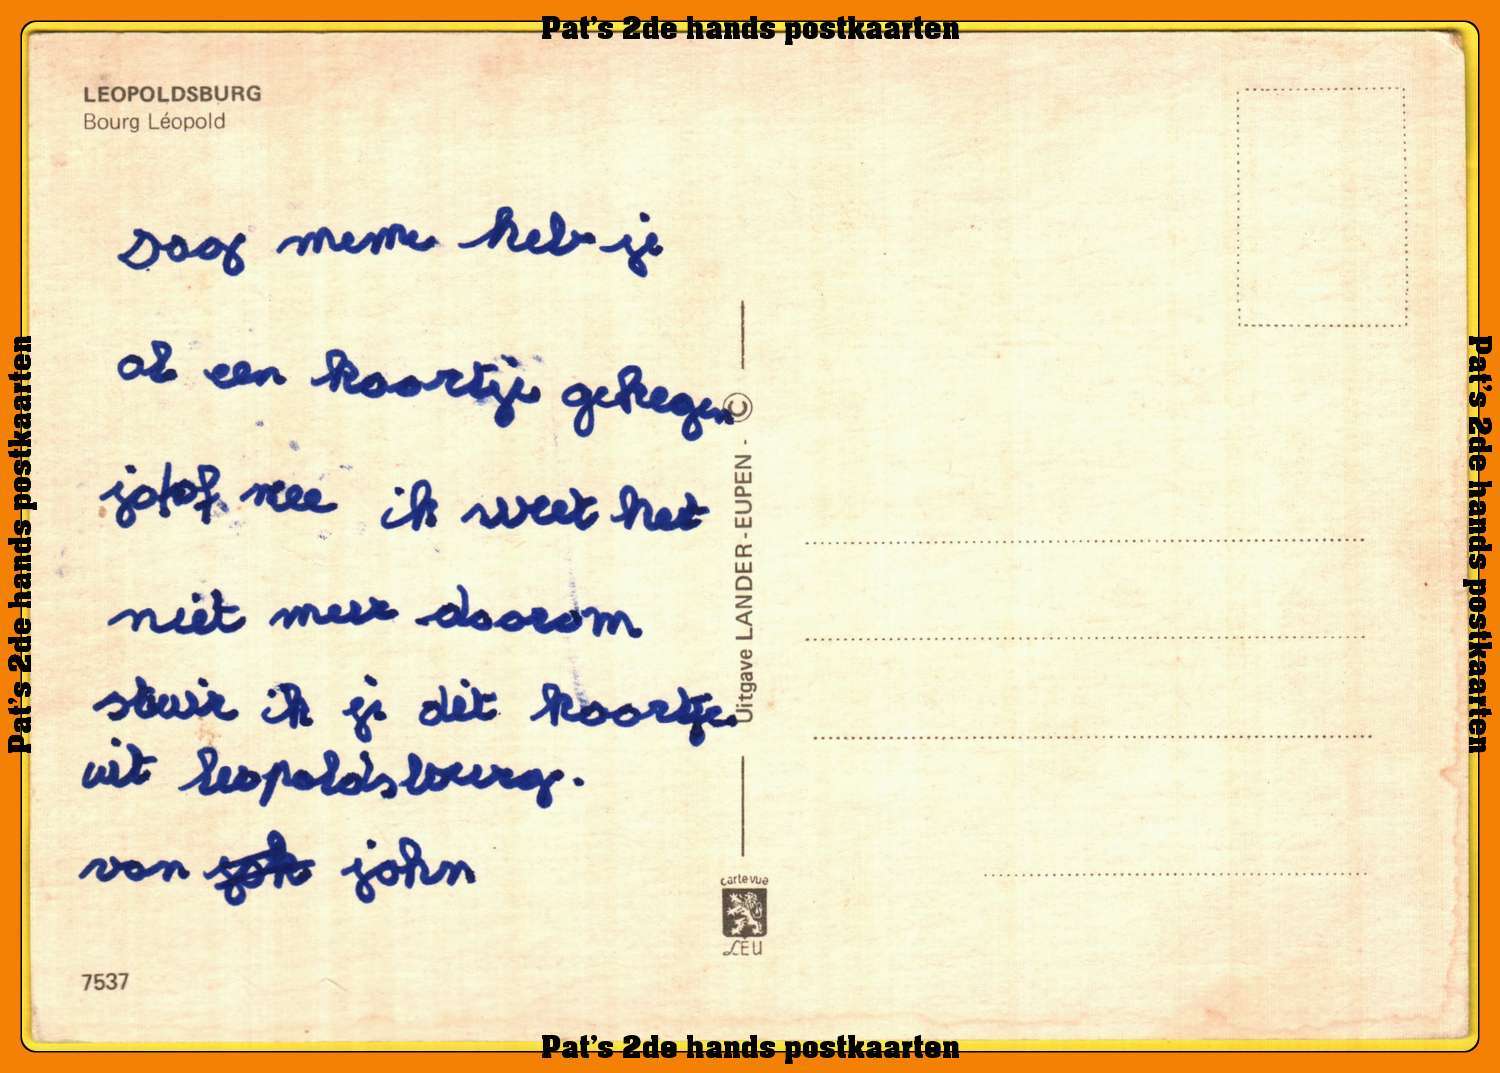 Pat's 2de hands postkaarten
LEOPOLDSBURG
Bourg Léopold
daag meme heb je
al een kaartje gekegen
ja of nee ik weet het
niet meer daarom
stuir ik je dit kaartje
uit leopoldsburg.
van joh john
7537
Uitgave LANDER-EUPEN - ©
carte vue
LEU
Pat's 2de hands postkaarten
Pat's 2de hands postkaarten
Pat's 2de hands postkaarten